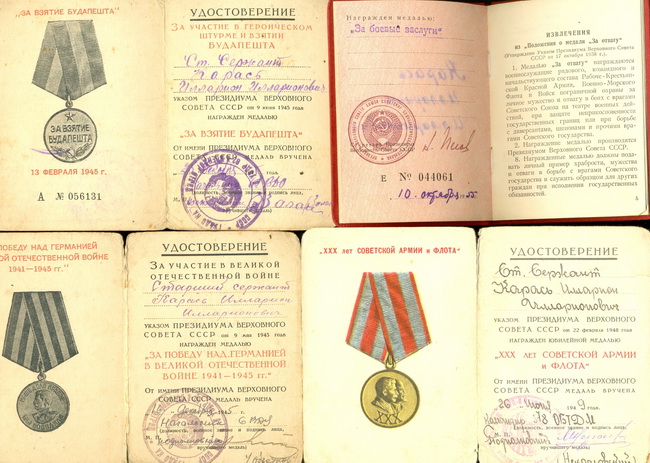 „ЗА ВЗЯТИЕ БУДАПЕШТА"
ЗА ВЗЯТИЕ
БУДАПЕШТА
13 ФЕВРАЛЯ 1945 г.
А № 056131
УДОСТОВЕРЕНИЕ
ЗА УЧАСТИЕ В ГЕРОИЧЕСКОМ
ШТУРМЕ И ВЗЯТИИ
БУДАПЕШТА
Ст. Сержант
Карась
Илларион Илларионович
УКАЗОМ ПРЕЗИДИУМА ВЕРХОВНОГО
СОВЕТА СССР от 9 июня 1945 года
НАГРАЖДЕН МЕДАЛЬЮ
„ЗА ВЗЯТИЕ БУДАПЕШТА"
От имени ПРЕЗИДИУМА ВЕРХОВНОГО
СОВЕТА СССР МЕДАЛЬ ВРУЧЕНА
Награжден медалью:
„За боевые заслуги"
Е № 044061
10 октября 1955
ИЗВЛЕЧЕНИЯ
из „Положения о медали „За отвагу"
(Утверждено Указом Президиума Верховного Совета
СССР от 17 октября 1938 г.).
1. Медалью „За отвагу" награждаются
военнослужащие рядового, командного и
начальствующего состава Рабоче-Крестьян-
ской Красной Армии, Военно-Морского
Флота и Войск пограничной охраны за
личное мужество и отвагу в боях с врагами
Советского Союза на театре военных дей-
ствий, при защите неприкосновенности
государственных границ или при борьбе
с диверсантами, шпионами и прочими вра-
гами Советского государства.
2. Награждение медалью производится
Президиумом Верховного Совета СССР.
8. Награжденные медалью должны пода-
вать личный пример храбрости, мужества
и отваги в борьбе с врагами Советского го-
сударства и служить образцом для других
граждан при исполнении государственных
обязанностей.
ПОБЕДУ НАД ГЕРМАНИЕЙ
ОЙ ОТЕЧЕСТВЕННОЙ ВОЙНЕ
1941—1945 гг."
УДОСТОВЕРЕНИЕ
ЗА УЧАСТИЕ В ВЕЛИКОЙ
ОТЕЧЕСТВЕННОЙ ВОЙНЕ
Старший сержант
Карась Илларион
Илларионович
УКАЗОМ ПРЕЗИДИУМА ВЕРХОВНОГО
СОВЕТА СССР от 9 мая 1945 года
НАГРАЖДЕН МЕДАЛЬЮ
„ЗА ПОБЕДУ НАД ГЕРМАНИЕЙ
В ВЕЛИКОЙ ОТЕЧЕСТВЕННОЙ
ВОЙНЕ 1941—1945 гг."
От имени ПРЕЗИДИУМА ВЕРХОВНОГО
СОВЕТА СССР МЕДАЛЬ ВРУЧЕНА
"XXX лет СОВЕТСКОЙ АРМИИ и ФЛОТА"
XXX
УДОСТОВЕРЕНИЕ
Ст. Сержант
Карась Иларион
Илларионович
УКАЗОМ ПРЕЗИДИУМА ВЕРХОВНОГО
СОВЕТА СССР от 22 февраля 1948 года
НАГРАЖДЕН ЮБИЛЕЙНОЙ МЕДАЛЬЮ
"XXX ЛЕТ СОВЕТСКОЙ АРМИИ
и ФЛОТА"
От имени ПРЕЗИДИУМА ВЕРХОВНОГО
СОВЕТА СССР МЕДАЛЬ ВРУЧЕНА
26 июня 1949 года.